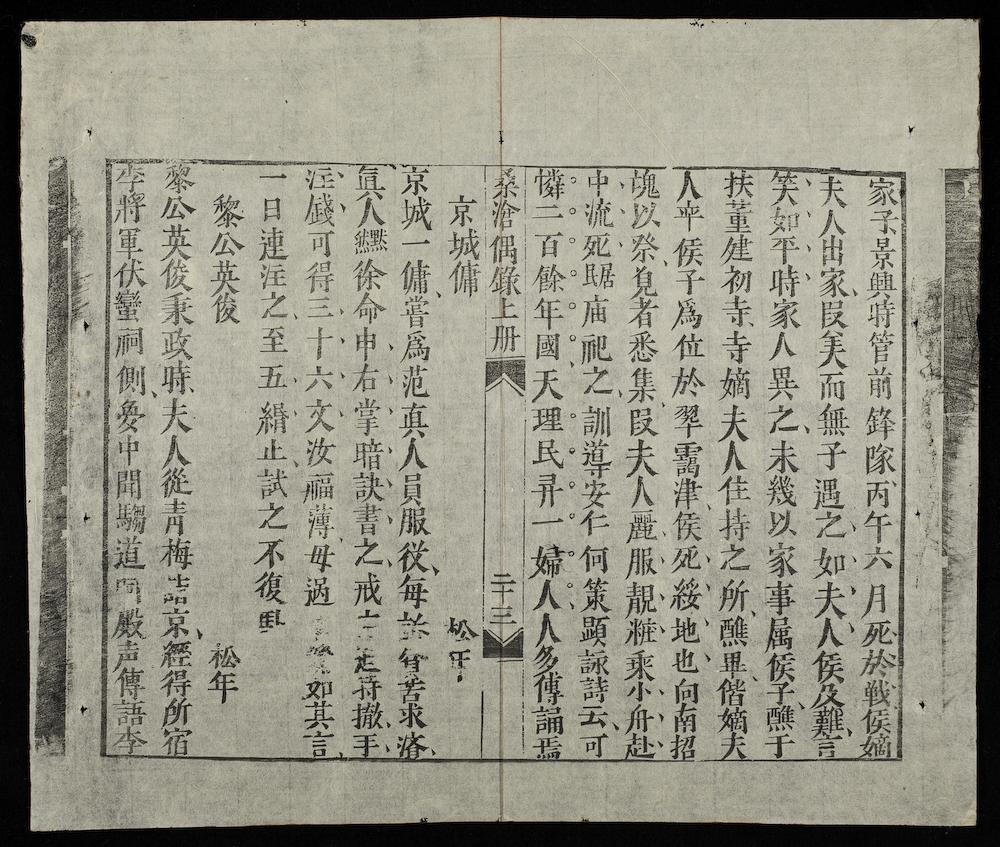 家子景興時管前鋒隊丙午六月死於戰侯嫡
夫人出家段美而無子遇之如夫人侯及難言
笑如平時家人異之未幾以家事属侯子醮于
扶董建初寺寺嫡夫人住持之所醮畢偕嫡夫
人平侯子爲位於翠靄津侯死綏地也向南招
魂以祭皃者悉集段夫人麗服靚粧乘小舟赴
中流死踞庙祀之訓導安仁何策顯詠詩云可
憐二百餘年國天理民彛一婦人人多傳誦焉
桑滄偶錄上册 二十三
京城傭 松年
京城一傭嘗爲范真人員服從每訴貧苦求濟
真人黙然徐命申右掌暗訣書之戒持撤手
注錢可得三十六文汝福薄毋過如其言
一日連注之至五緡止試之不復
黎公英俊 松年
黎公英俊秉政時夫人從青梅詣京經得所宿
李將軍伏蠻祠側夢中聞騶道殿声傳語李